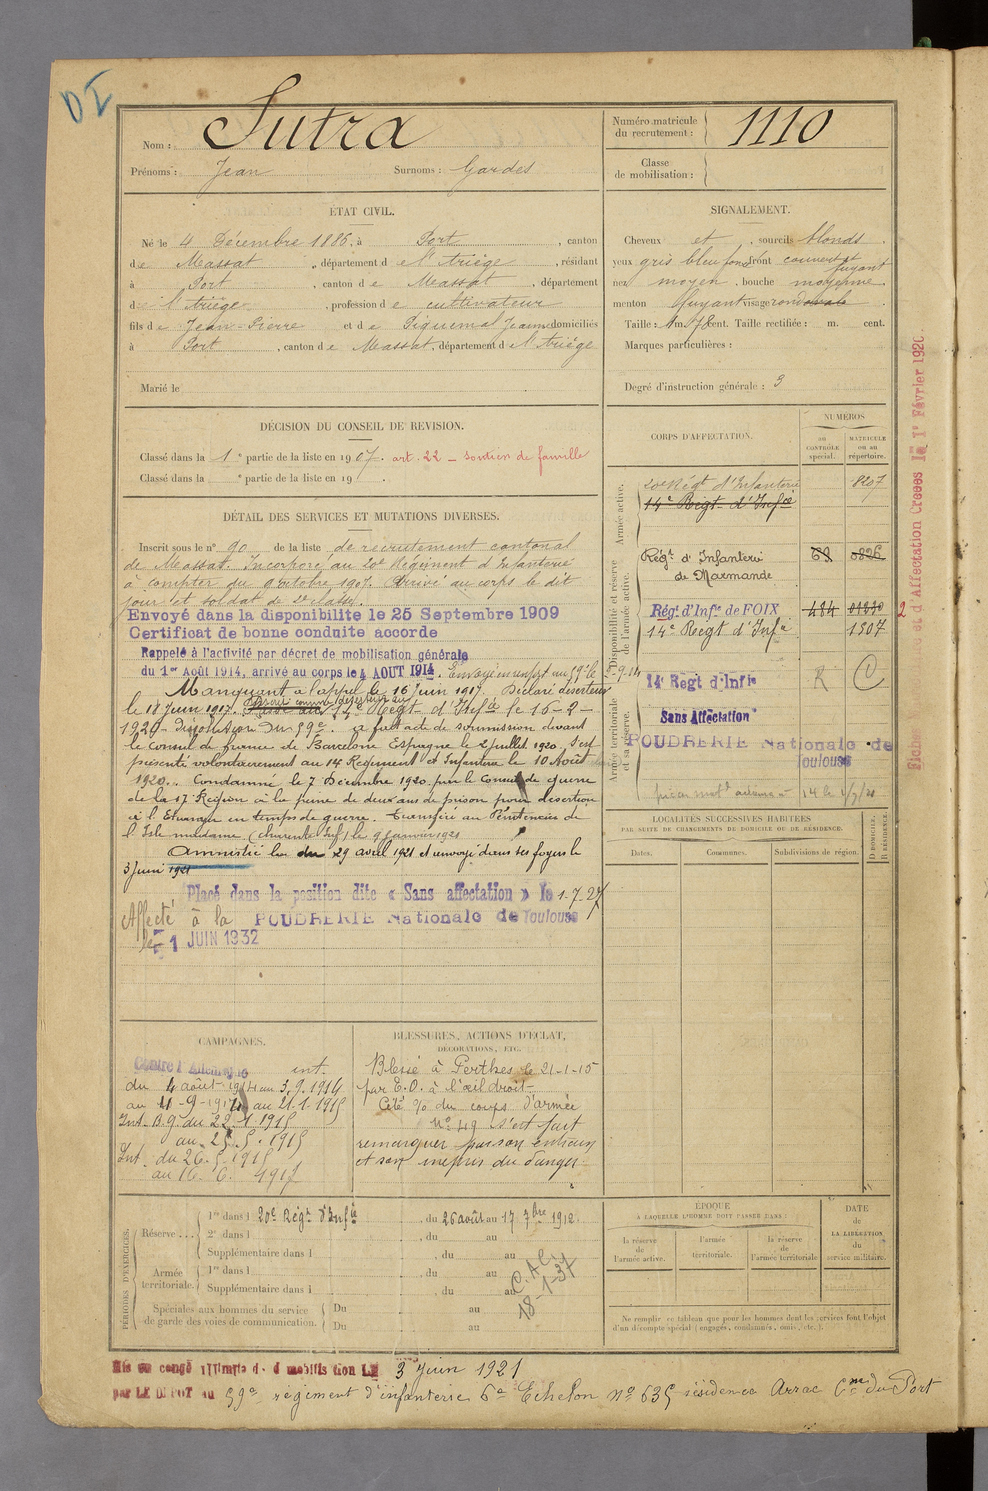 DI
Nom : Sutra
Prénoms : Jean Surnoms : Gardes
Numéro matricule du recrutement : 1110
Classe de mobilisation :
ÉTAT CIVIL.
Né le 4 Décembre 1886, à Port, canton
de Massat, département de l'Ariège, résidant
à Port, canton de Massat, département
de l'Ariège, profession de cultivateur
fils de Jean-Pierre et de Piquemal Jeanne domiciliés
à Port, canton de Massat, département de l'Ariège
Marié le
SIGNALEMENT.
Cheveux et sourcils blonds.
yeux gris bleu foncé front couvert et fuyant
nez moyen, bouche moyenne
menton fuyant visage rond ovale.
Taille : 1 m. 78 cent. Taille rectifiée : m. cent.
Marques particulières :
Degré d'instruction générale : 3
DÉCISION DU CONSEIL DE REVISION.
Classé dans la 1e partie de la liste en 1907. art. 22 – soutien de famille
Classé dans la e partie de la liste en 19 .
DÉTAIL DES SERVICES ET MUTATIONS DIVERSES.
Inscrit sous le n° 90 de la liste de recrutement cantonal
de Massat. Incorporé au 20e Régiment d'Infanterie
à compter du 9 octobre 1907. Arrivé au corps le dit
jour et soldat de 2e classe.
Envoyé dans la disponibilité le 25 Septembre 1909
Certificat de bonne conduite accordé
Rappelé à l'activité par décret de mobilisation générale
du 1er Août 1914, arrivé au corps le 4 AOUT 1914. Envoyé en renfort au 59e le 5-9-14
Manquant à l'appel le 16 Juin 1917. Déclaré déserteur
le 18 Juin 1917. Passé comme déserteur au
Passé au 14e Regt d'Infie le 16-2-
1920 - Dissolution du 59e. a fait acte de soumission devant
le Consul de france de Barcelone Espagne le 2 juillet 1920. S'est
présenté volontairement au 14 Régiment d'Infanterie le 10 Août
1920. Condamné le 7 Décembre 1920 par le Conseil de guerre
de la 17e Région à la peine de deux ans de prison pour désertion
à l'Etranger en temps de guerre. Transféré au Pénitencier de
l'Isle madame (charente Inf) le 9 janvier 1921
Amnistié le 29 avril 1921 et envoyé dans ses foyers le
3 Juin 1921
Placé dans la position dite « Sans affectation » le 1-7-27
Affecté à la POUDRERIE Nationale de Toulouse
le 1 JUIN 1932
CORPS D'AFFECTATION.
NUMÉROS
au CONTRÔLE spécial.
MATRICULE ou au répertoire.
Armée active.
20e Régt d'Infanterie 8207
14e Régt d'Infie
Disponibilité et réserve de l'armée active.
Régt d'Infanterie de Marmande 63 0826
Régt d'Infie de FOIX 484 01830 2
14e Regt d'Infie 1507
Armée territoriale et sa réserve.
14e Regt d'Infie R C
Sans Affectation
POUDRERIE Nationale de Toulouse
Fiches et d'Affectation Créées le 1er Février 1920
LOCALITÉS SUCCESSIVES HABITÉES
PAR SUITE DE CHANGEMENTS DE DOMICILE OU DE RÉSIDENCE.
Dates. Communes. Subdivisions de région. D DOMICILE. R RÉSIDENCE.
CAMPAGNES.
Contre l'Allemagne int.
du 4 août 1914 au 3.9.1914
au 4-9-1914 au 21-1-1915
Int. B.g. du 22-1-1915
au 25.5.1915
Int. du 26.5.1915
au 16.6.1917
BLESSURES, ACTIONS D'ÉCLAT,
DÉCORATIONS, ETC.
Blessé à Perthes le 21-1-15
par E.O. à l'œil droit
Cité % du corps d'armée
N° 49 s'est fait
remarquer par son entrain
et son mépris du danger.
PÉRIODES D'EXERCICES.
Réserve... 1re dans l 20e Régt d'Infie, du 26 août au 17 7bre 1912.
2e dans l , du au
Supplémentaire dans l , du au
Armée territoriale. 1re dans l , du au
Supplémentaire dans l , du au
Spéciales aux hommes du service de garde des voies de communication. Du au
Du au
18-1-37
ÉPOQUE
À LAQUELLE L'HOMME DOIT PASSER DANS :
la réserve de l'armée active.
l'armée territoriale.
la réserve de l'armée territoriale
DATE de LA LIBÉRATION du service militaire.
Ne remplir ce tableau que pour les hommes dont les services font l'objet
d'un décompte spécial (engagés, condamnés, omis, etc.).
Mis en congé illimité de démobilisation LE 3 Juin 1921
par LE DEPOT du 59e régiment d'infanterie 6e Echelon N° 635 résidence Arrac Cne du Port